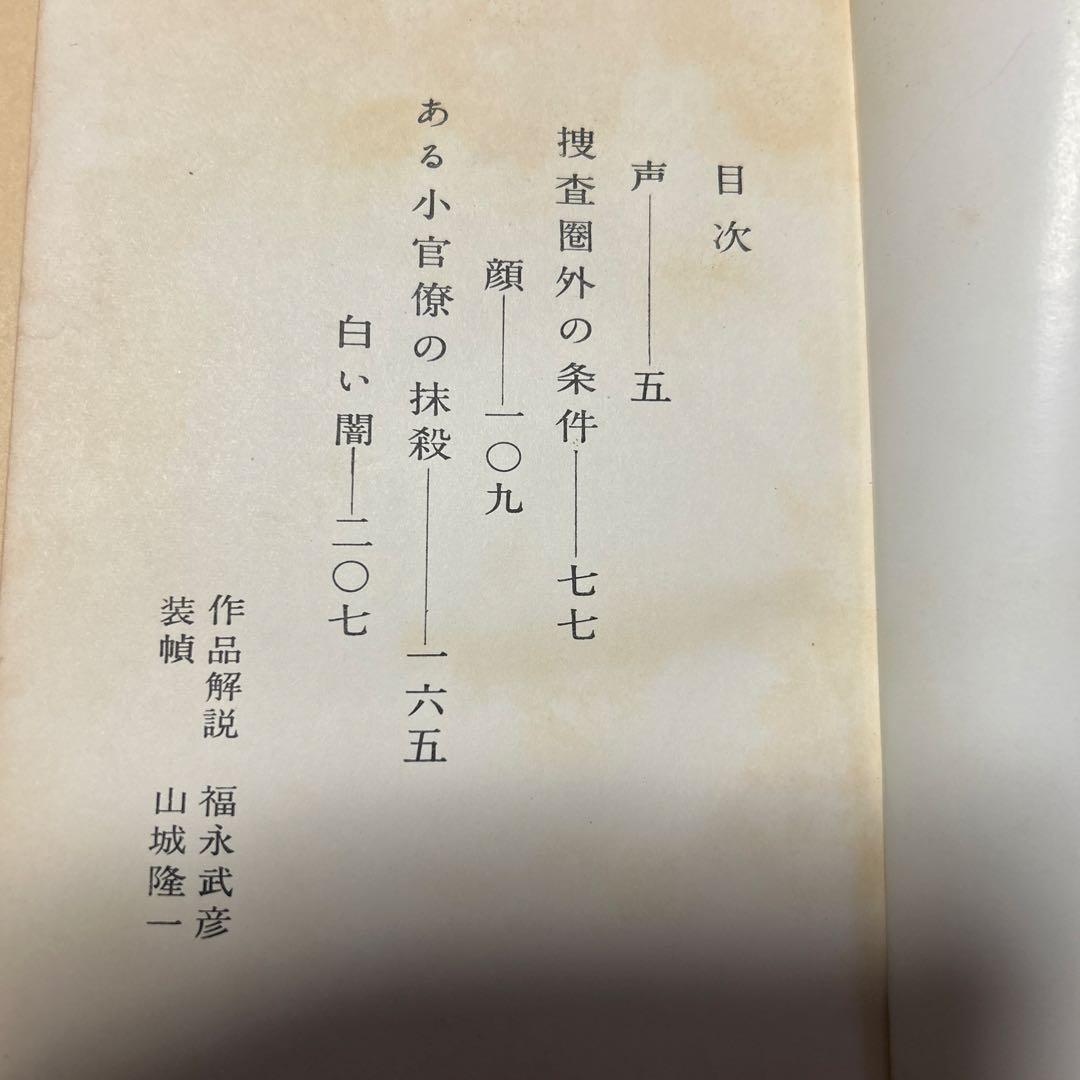 目次
声――五
捜査圏外の条件――七七
顔――一〇九
ある小官僚の抹殺――一六五
白い闇――二〇七
作品解説 福永武彦
装幀 山城隆一